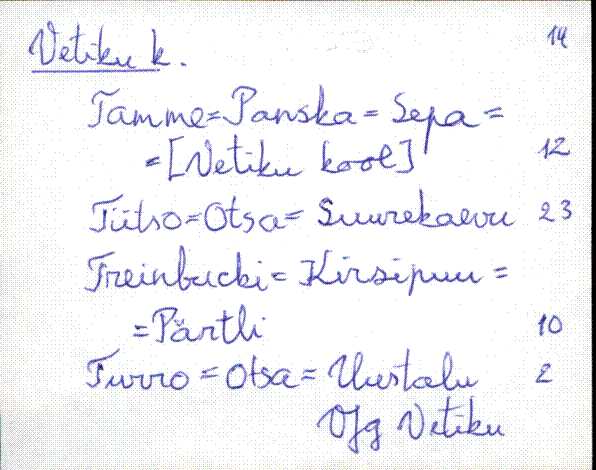 Vetiku k. 14
Tamme = Panska = Sepa =
= [Vetiku kool] 12
Tiitso = Otsa = Suurekaevu 23
Treinbucki = Kirsipuu =
= Pärtli 10
Turro = Otsa = Uustalu 2
Vetiku